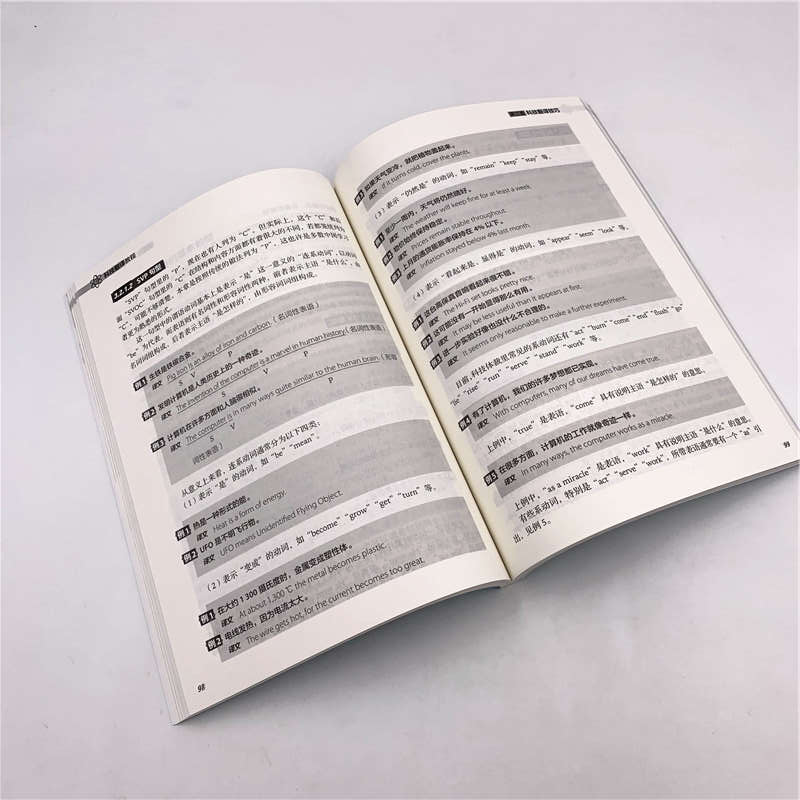 科技翻译教程
3.2.1.2 SVP 句型
“SVP”句型里的“P”，现在也有人列为“C”。但实际上，这个“C”和前
面“SVOC”句型里的“C”在结构和内容方面都有着很大的不同，若都笼统列为
“C”，可能不够清楚。本章是按照传统的叫法列为“P”，这也许是多数中国学习
者更为熟悉的形式。
这一句型中的谓语动词基本上是表示“是”这一意义的“连系动词”，以动词
“be”为代表。而表语则有名词性和形容词性两种，前者表示主语“是什么”，由
名词词组构成，后者表示主语“是怎样的”，由形容词词组构成。
例1 生铁是铁碳合金。
译文 Pig iron is an alloy of iron and carbon.（名词性表语）
S V P
例2 发明计算机是人类历史上的一种奇迹。
译文 The invention of the computer is a marvel in human history.（名词性表语）
S V P
例3 计算机在许多方面和人脑很相似。
译文 The computer is in many ways quite similar to the human brain.（形容
S V P
词性表语）
从意义上来看，连系动词通常分为以下四类。
（1）表示“是”的动词，如“be”“mean”。
例1 热是一种形式的能。
译文 Heat is a form of energy.
例2 UFO 是不明飞行物。
译文 UFO means Unidentified Flying Object.
（2）表示“变成”的动词，如“become”“grow”“get”“turn”等。
例1 在大约 1 300 摄氏度时，金属变成塑性体。
译文 At about 1,300 ℃ the metal becomes plastic.
例2 电线发热，因为电流太大。
译文 The wire gets hot, for the current becomes too great.
98
科技翻译技巧
例3 如果天气变冷，就把植物盖起来。
译文 If it turns cold, cover the plants.
（3）表示“仍然是”的动词，如“remain”“keep”“stay”等。
例1 至少一周内，天气将仍然晴好。
译文 The weather will keep fine for at least a week.
例2 物价始终保持稳定。
译文 Prices remain stable throughout.
例3 上月的通货膨胀率保持在 4% 以下。
译文 Inflation stayed below 4% last month.
（4）表示“看起来是、显得是”的动词，如“appear”“seem”“look”等。
例1 这台高保真音响看起来很不错。
译文 The Hi-Fi set looks pretty nice.
例2 这可能没有一开始显得那么有用。
译文 It may be less useful than it appears at first.
例3 进一步实验好像也没什么不合理的。
译文 It seems only reasonable to make a further experiment.
目前，科技体裁里常见的系动词还有“act”“turn”“come”“end”“flush”“go”
“lie”“rise”“run”“serve”“stand”“work”等。
例4 有了计算机，我们的许多梦想都已实现。
译文 With computers, many of our dreams have come true.
上例中，“true”是表语，“come”具有说明主语“是怎样的”的意思。
例5 在很多方面，计算机的工作就像奇迹一样。
译文 In many ways, the computer works as a miracle.
上例中，“as a miracle”是表语，“work”具有说明主语“是什么”的意思。
有些系动词，特别是“act”“serve”“work”，所带表语通常要有一个“as”引
出，见例 5。
99